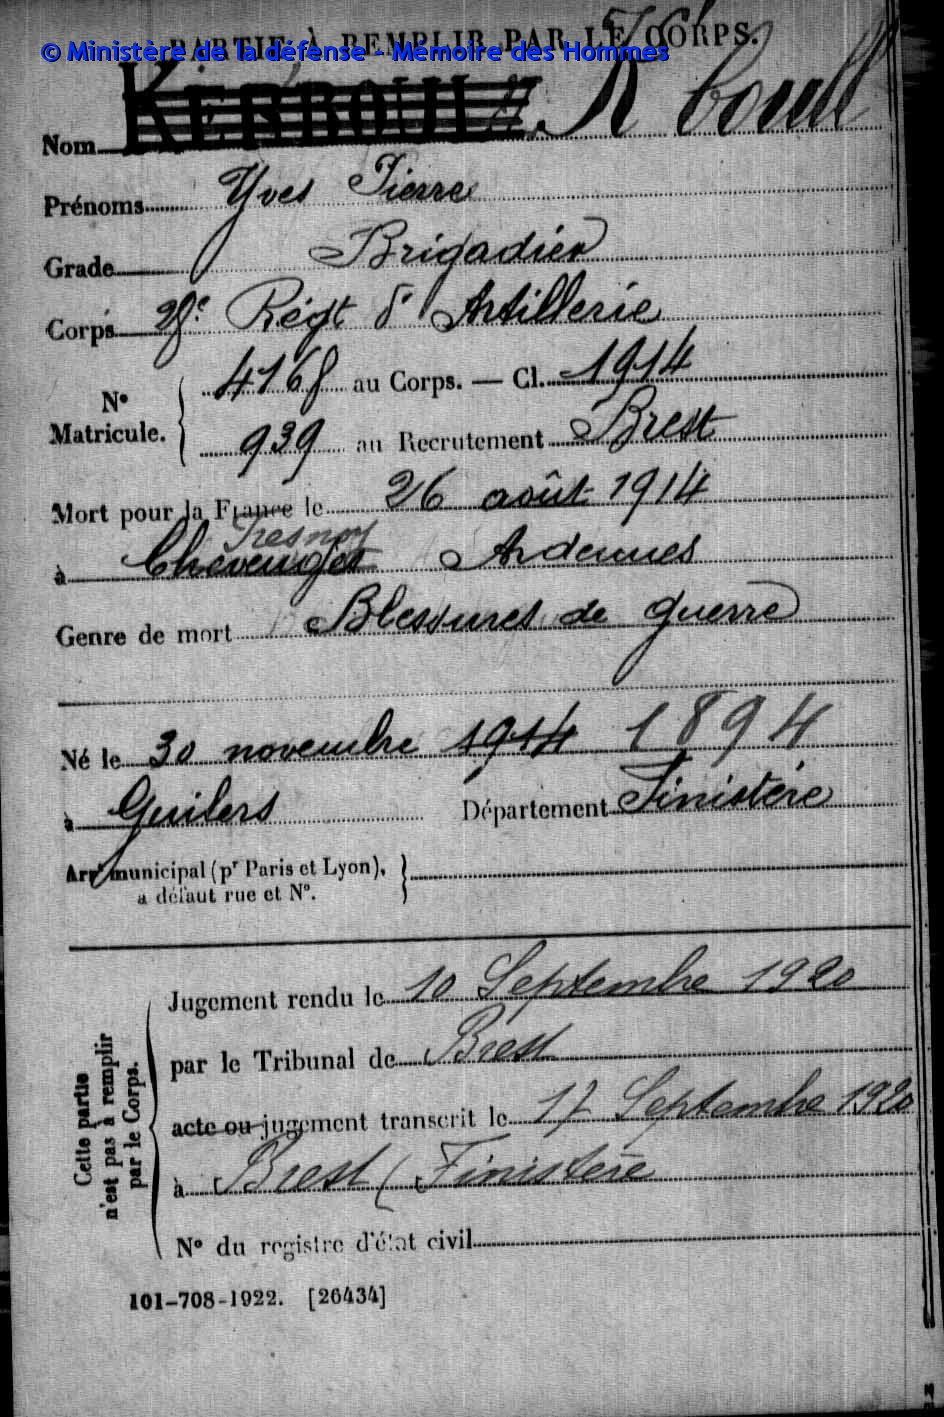 PARTIE À REMPLIR PAR LE CORPS.
© Ministère de la défense - Mémoire des Hommes
Nom KERBOUL
Prénoms Yves Pierre
Grade Brigadier
Corps 28e Régt d'Artillerie
N° Matricule. 4168 au Corps. — Cl. 1914
939 au Recrutement Brest
Mort pour la France le 26 août 1914
Fresnoy
à Chevenges Ardennes
Genre de mort Blessures de guerre
Né le 30 novembre 1914 1894
à Guilers Département Finistère
Arrt municipal (pr Paris et Lyon),
à défaut rue et N°.
Cette partie
n'est pas à remplir
par le Corps.
Jugement rendu le 10 Septembre 1920
par le Tribunal de Brest
acte ou jugement transcrit le 17 Septembre 1920
à Brest (Finistère
N° du registre d'état civil
101-708-1922. [26434]